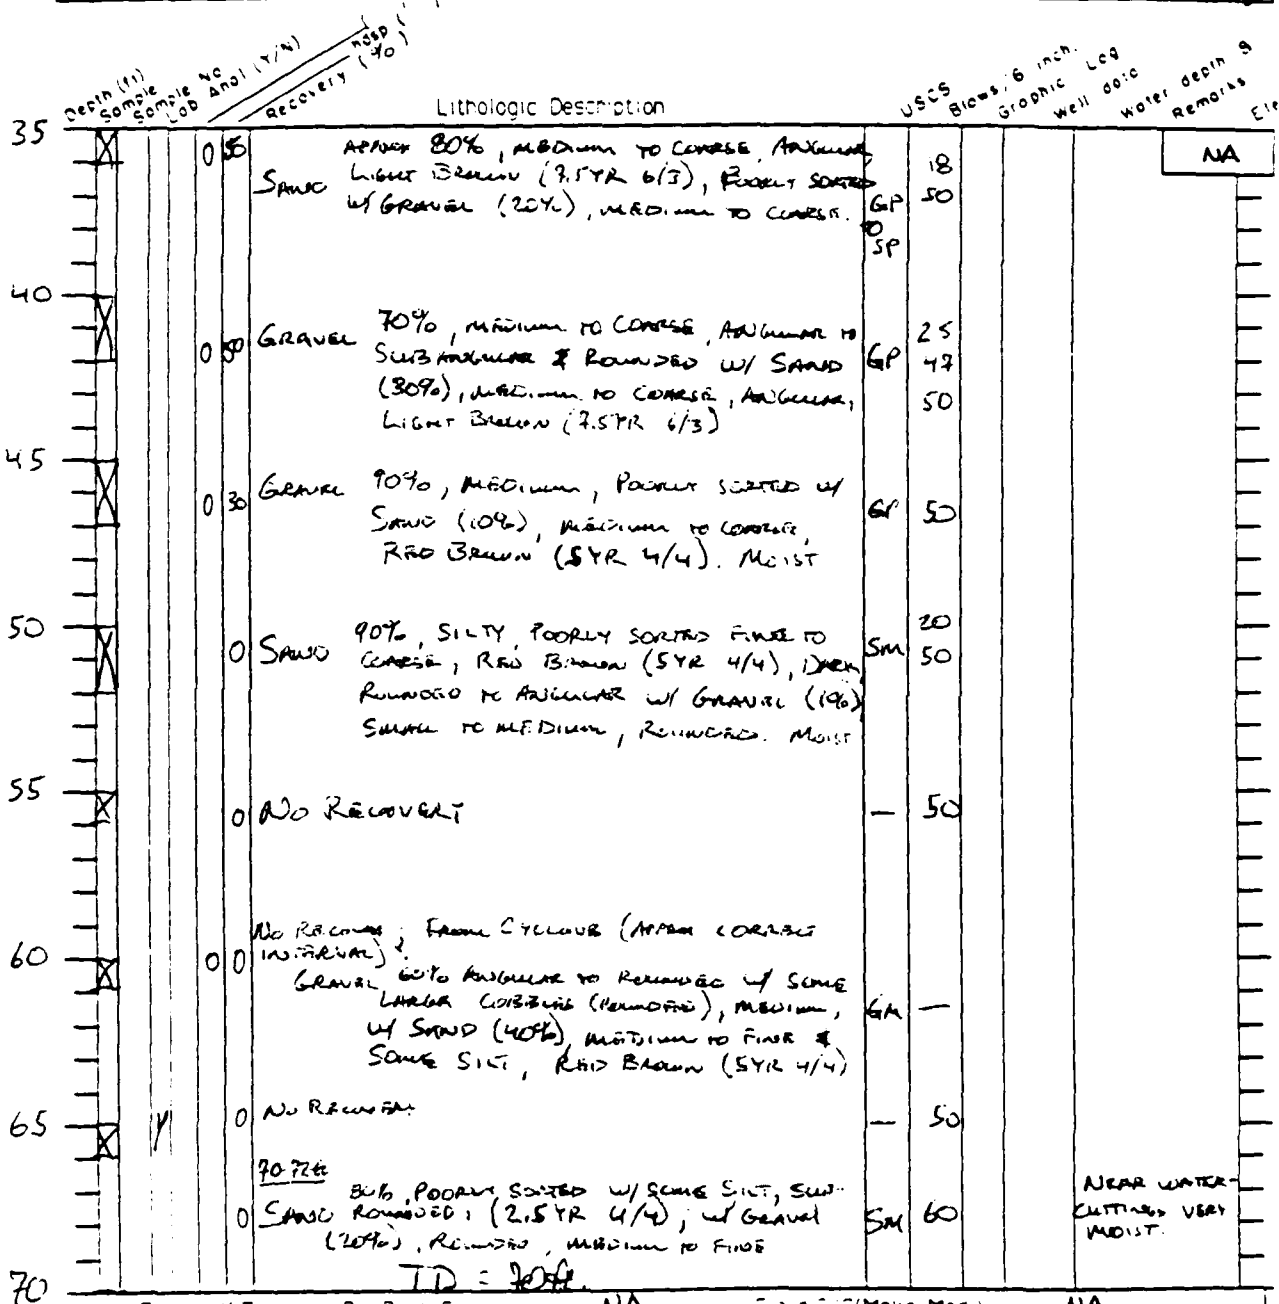 Depth (ft)
Sample
Sample No
Lab Anal (Y/N)
Recovery (%)
Lithologic Description
USCS
Blows/6 inch.
Graphic Log
Well data
Water depth &
Remarks
Ele
35
0 55
APPROX 80%, MEDIUM TO COARSE, ANGULAR,
SAND LIGHT BROWN (7.5YR 6/3), POORLY SORTED
W/ GRAVEL (20%), MEDIUM TO COARSE.
GP
TO
SP
18
50
NA
40
0 50
GRAVEL 70%, MEDIUM TO COARSE, ANGULAR TO
SUBANGULAR & ROUNDED W/ SAND
(30%), MEDIUM TO COARSE, ANGULAR,
LIGHT BROWN (7.5YR 6/3)
GP
25
47
50
45
0 30
GRAVEL 90%, MEDIUM, POORLY SORTED W/
SAND (10%), MEDIUM TO COARSE,
RED BROWN (5YR 4/4). MOIST
GP 50
50
0 SAND 90%, SILTY, POORLY SORTED FINE TO
COARSE, RED BROWN (5YR 4/4), DARK,
ROUNDED TO ANGULAR W/ GRAVEL (1%)
SMALL TO MEDIUM, ROUNDED. MOIST
SM
20
50
55
0 NO RECOVERY — 50
NO RECOVERY; FROM CYCLONE (APPROX CORRECT
60
0 0 INTERVAL):
GRAVEL 60% ANGULAR TO ROUNDED W/ SOME
LARGER COBBLES (ROUNDED), MEDIUM,
W/ SAND (40%), MEDIUM TO FINE &
SOME SILT, RED BROWN (5YR 4/4)
GM —
65
Y
0 NO RECOVERY — 50
70-72ft
80%, POORLY SORTED W/ SOME SILT, SUB-
0 SAND ROUNDED, (2.5YR 4/4), W/ GRAVEL
(20%), ROUNDED, MEDIUM TO FINE
SM 60
NEAR WATER-
CUTTINGS VERY
MOIST.
70
TD = 70ft.
NA
NA